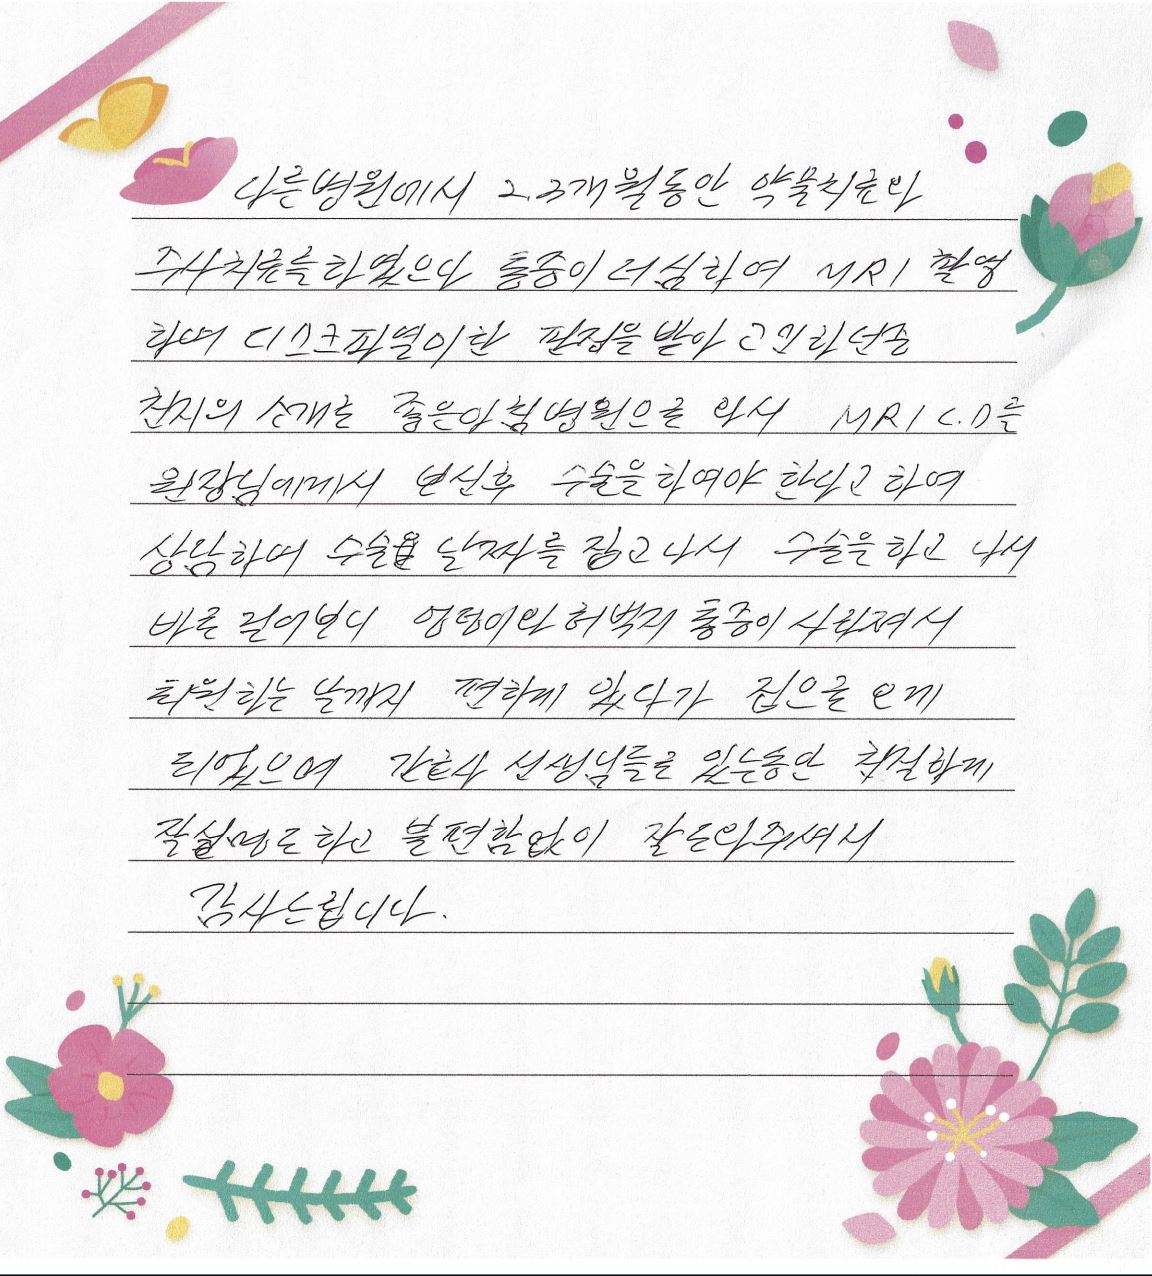 다른병원에서 2.3개월동안 약물치료와
주사치료를하였으나 통증이 더심하여 MRI 촬영
하여 디스크파열이란 판정을 받아 고민하던중
친지의 소개로 좋은아침병원으로 와서 MRI C.D를
원장님에게서 보신후 수술을하여야 한다고 하여
상담하여 수술 날짜를 잡고나서 수술을하고 나서
바로 걸어보니 엉덩이와허벅지 통증이 사라져서
퇴원하는 날까지 편하게 있다가 집으로 오게
되었으며 간호사 선생님들로 있는동안 친절하게
잘설명도 하고 불편함없이 잘도와주셔서
감사드립니다.